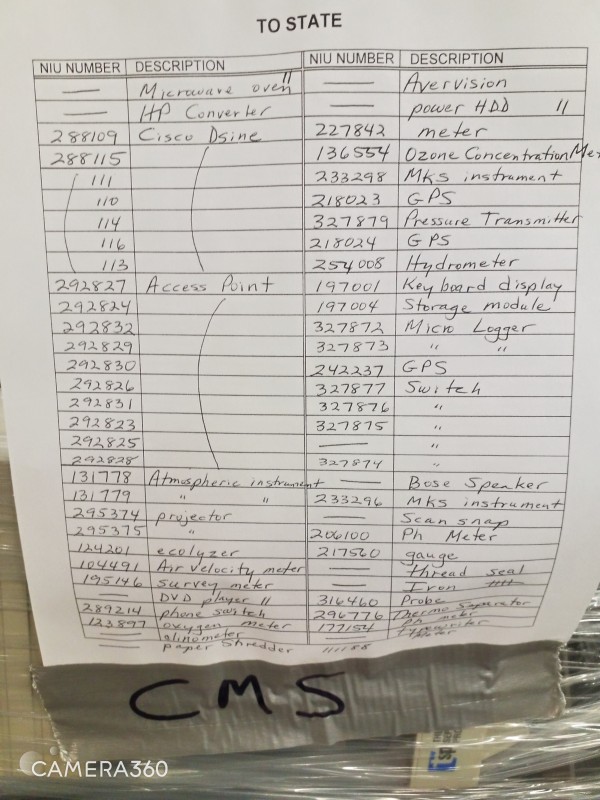 TO STATE
NIU NUMBER DESCRIPTION NIU NUMBER DESCRIPTION
— Microwave oven "
— HP Converter
288109 Cisco Dsine
288115
111
110
114
116
113
292827 Access Point
292824
292832
292829
292830
292826
292831
292823
292825
292828
131778 Atmospheric instrument
131779 " "
295374 projector
295375 "
124201 ecolyzer
104491 Air Velocity meter
195146 survey meter
— DVD player "
289214 phone switch
123897 oxygen meter
— alinometer
— paper Shredder
— Avervision
— power HDD 11
227842 meter
136554 Ozone Concentration Me
233298 MKS instrument
218023 GPS
327879 Pressure Transmitter
218024 GPS
254008 Hydrometer
197001 Keyboard display
197004 Storage module
327872 Micro Logger
327873 " "
242237 GPS
327877 Switch
327876 "
327875 "
— "
327874 "
— Bose Speaker
233296 MKS instrument
— Scan snap
206100 Ph Meter
217560 gauge
— thread seal
— Iron
316460 Probe
296776 Thermo Separator
177154 Ph meter
— typewriter
meter
CMS
CAMERA360